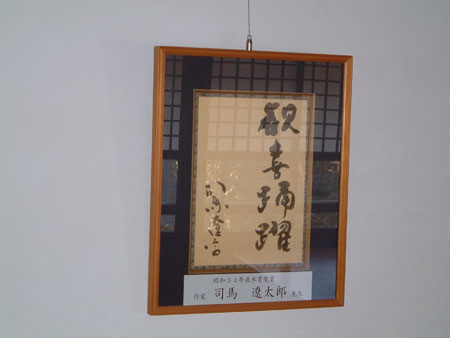 歓喜踊躍
司馬遼太郎
昭和34年直木賞受賞
作家 司馬 遼太郎 先生